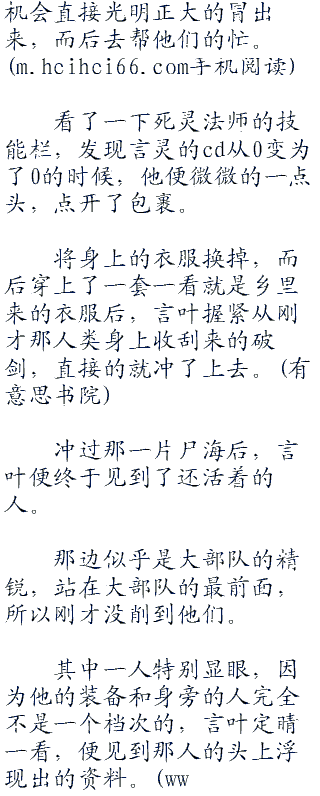 机会直接光明正大的冒出
来，而后去帮他们的忙。
(m.hcihci66.com手机阅读)
看了一下死灵法师的技
能栏，发现言灵的cd从0变为
了0的时候，他便微微的一点
头，点开了包裹。
将身上的衣服换掉，而
后穿上了一套一看就是乡里
来的衣服后，言叶握紧从刚
才那人类身上收刮来的破
剑，直接的就冲了上去。(有
意思书院)
冲过那一片尸海后，言
叶便终于见到了还活着的
人。
那边似乎是大部队的精
锐，站在大部队的最前面，
所以刚才没削到他们。
其中一人特别显眼，因
为他的装备和身旁的人完全
不是一个档次的，言叶定睛
一看，便见到那人的头上浮
现出的资料。(ww